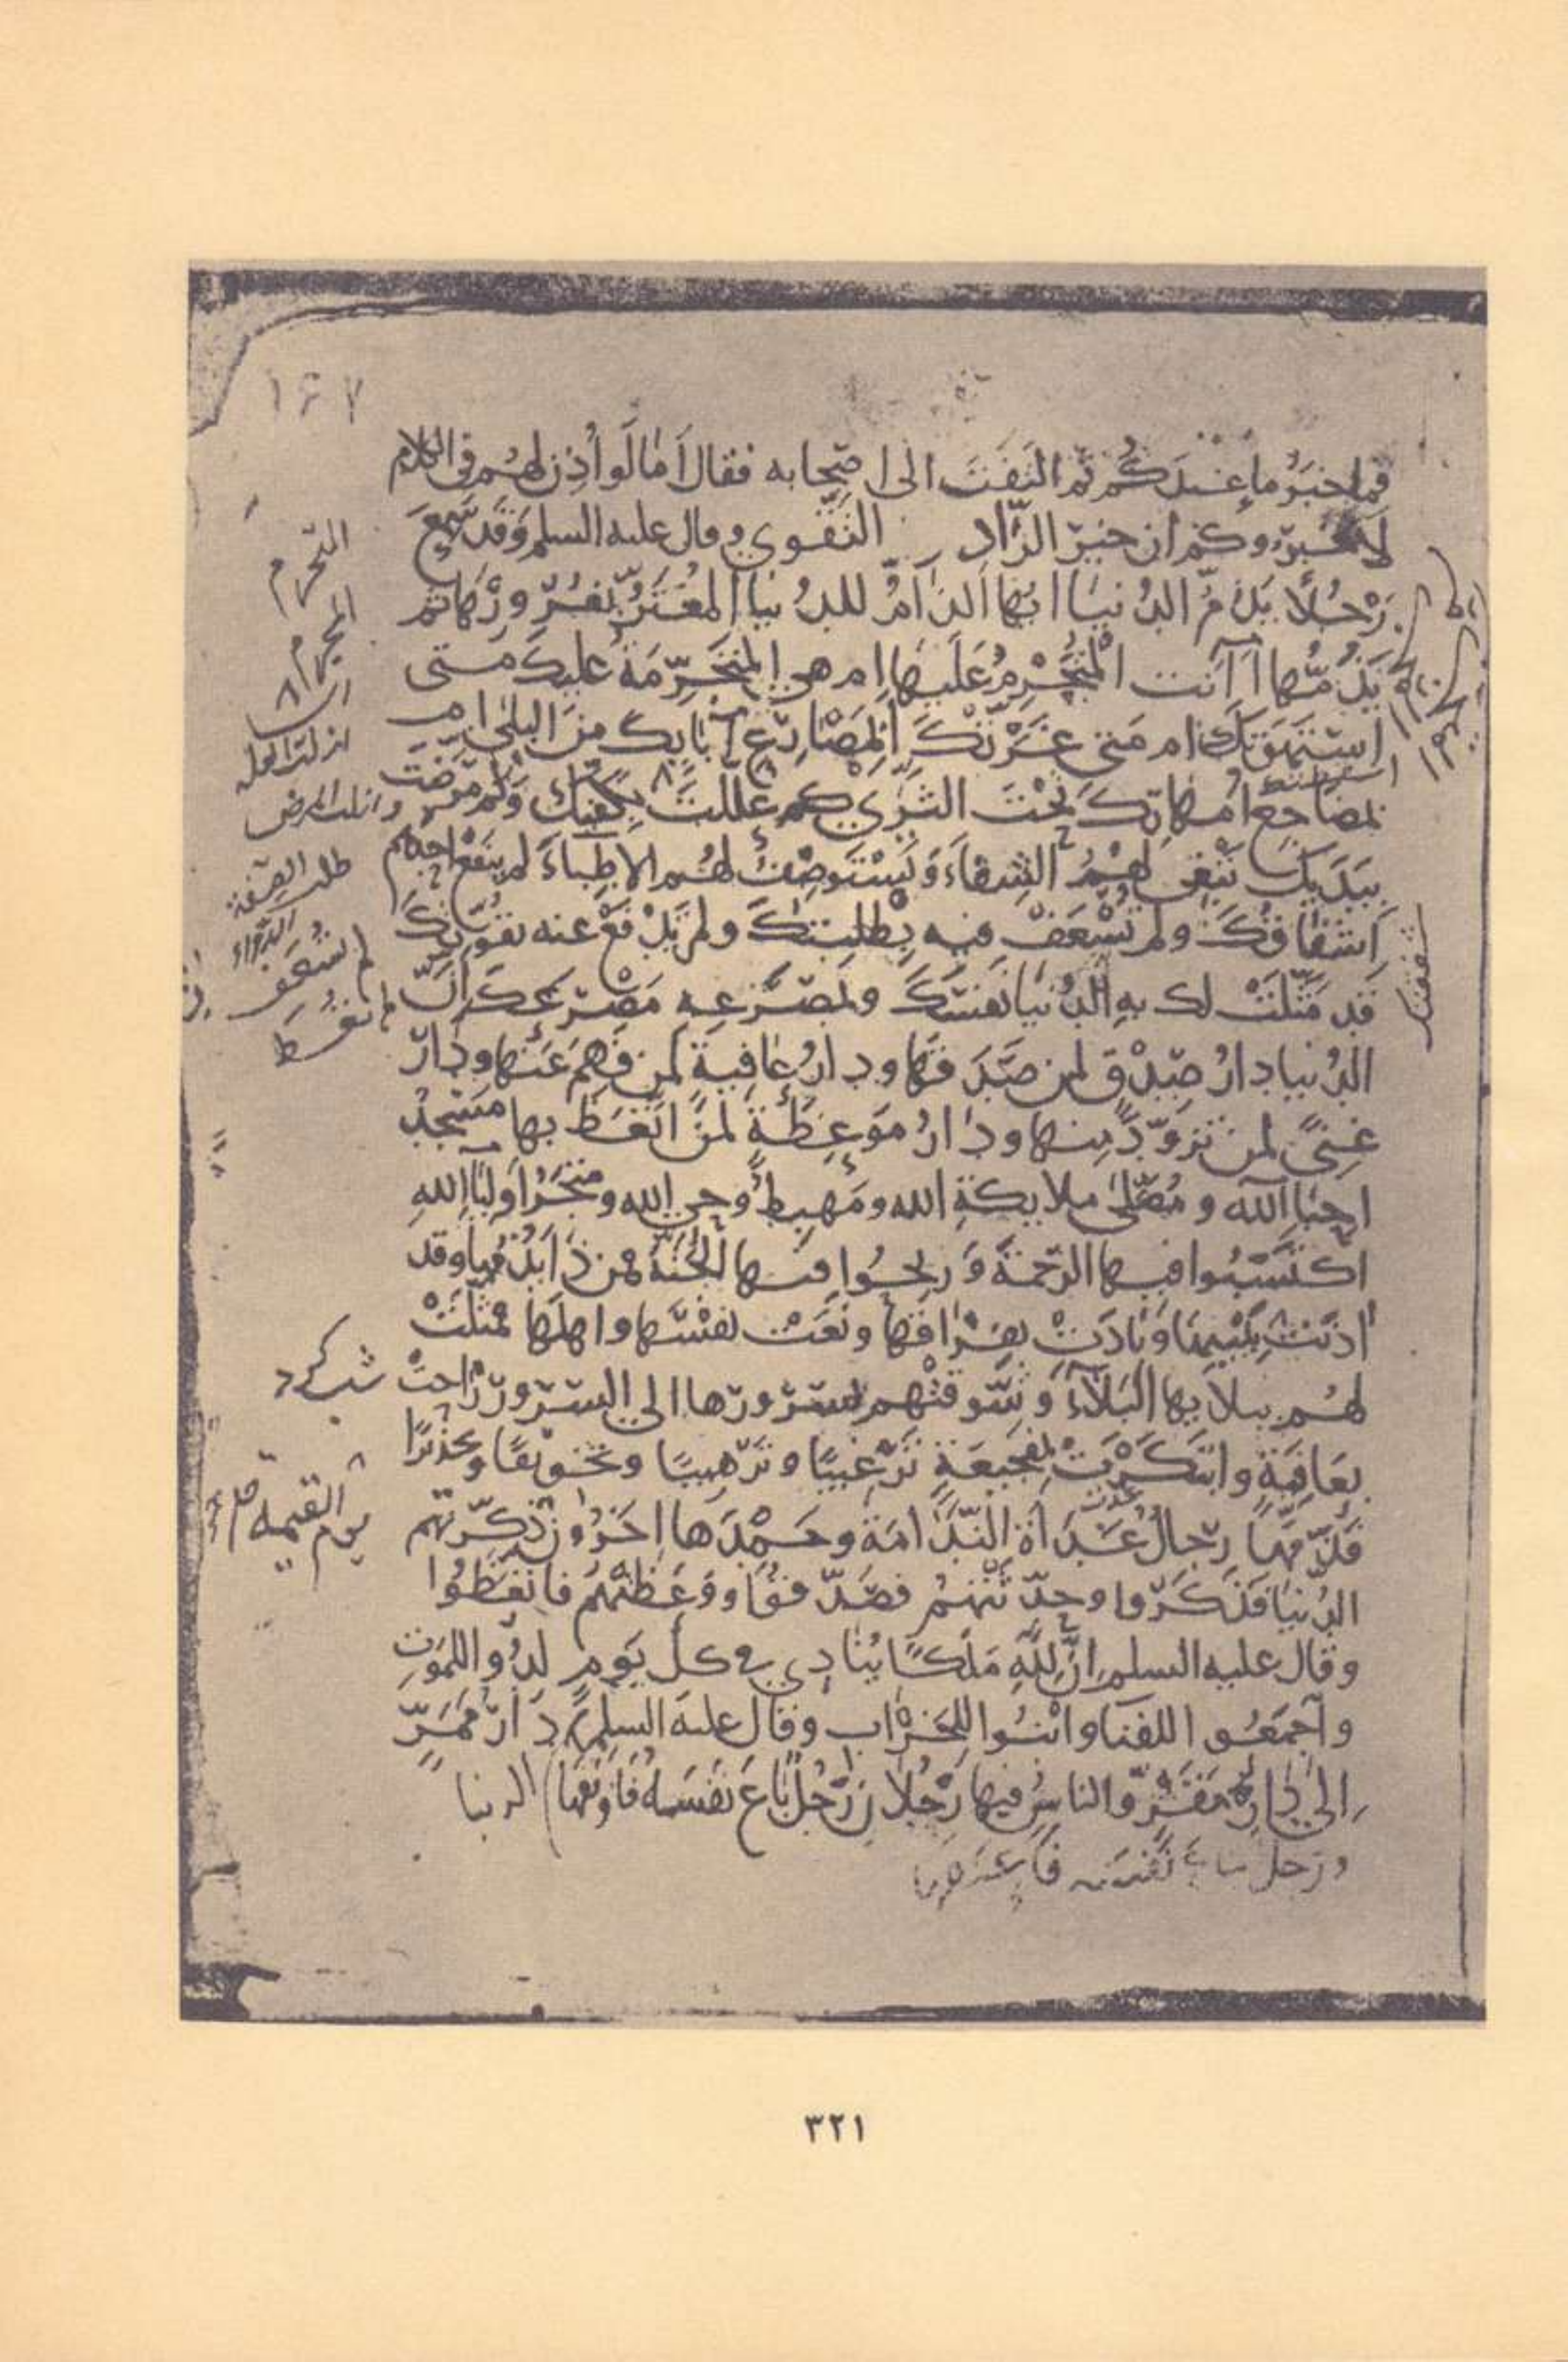 ١٦٧
فما خبر ما عندكم ثم التفت الى اصحابه فقال اما لو اذن لهم في الكلام
لاخبروكم ان خير الزاد التقوى وقال عليه السلم وقد سمع
رجلا يذم الدنيا ايها الذام للدنيا المغتر بغرورها ثم
تذمها أأنت المتجرم عليها ام هي المتجرمة عليك متى
استهوتك ام متى غرتك أبمصارع آبائك من البلى ام
بمضاجع امهاتك تحت الثرى كم عللت بكفيك وكم مرضت
بيديك تبغي لهم الشفاء وتستوصف لهم الاطباء لم ينفع احدهم
اشفاقك ولم تسعف فيه بطلبتك ولم تدفع عنه بقوتك
قد مثلت لك به الدنيا نفسك وبمصرعه مصرعك ان
الدنيا دار صدق لمن صدقها ودار عافية لمن فهم عنها ودار
غنى لمن تزود منها ودار موعظة لمن اتعظ بها مسجد
احباء الله ومصلى ملايكة الله ومهبط وحي الله ومتجر اولياء الله
اكتسبوا فيها الرحمة وربحوا فيها الجنة فمن ذا يذمها وقد
اذنت ببينها ونادت بفراقها ونعت نفسها واهلها فمثلت
لهم ببلائها البلاء وشوقتهم بسرورها الى السرور راحت
بعافية وابتكرت بفجيعة ترغيبا وترهيبا وتخويفا وتحذيرا
فذمها رجال غداة الندامة وحمدها اخرون ذكرتهم
الدنيا فذكروا وحدثتهم فصدقوا ووعظتهم فاتعظوا
وقال عليه السلم ان لله ملكا ينادي في كل يوم لدوا للموت
واجمعوا للفنا وابنوا للخراب وقال عليه السلم دار ممر
الى دار مقر والناس فيها رجلان رجل باع نفسه فاوبقها الدنيا
ورجل نفسه
التجرم
ازلت العله
وازلت المرض
طلب الصفة
الدواء
لم تسعف
يوم القيمه
٣٢١